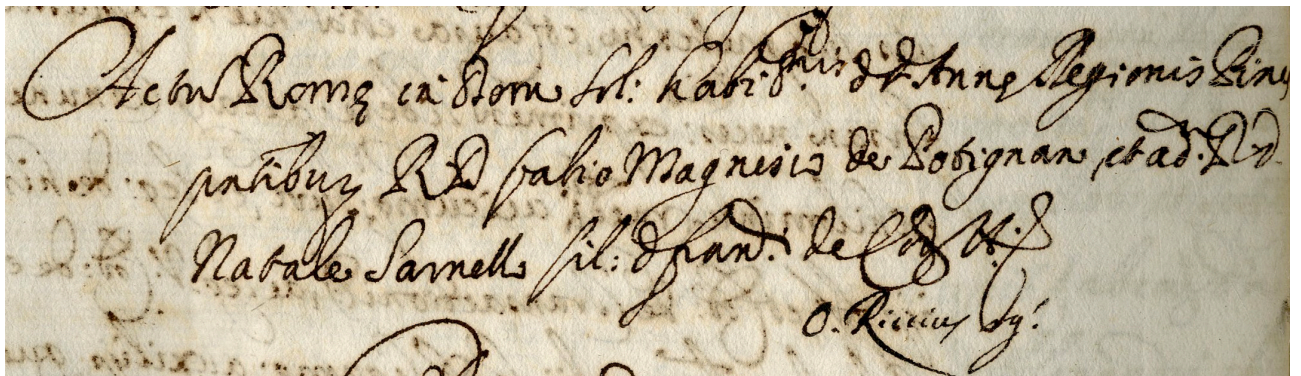 Actu Romę in Domo sol: habit.nis d. d. Annę Regionis Pineę
pntibus R. D. fabio Magnesio de Potignano, et ad. R. D.
Natale Sarnello fil: q. fran.ci de
O. Riccius